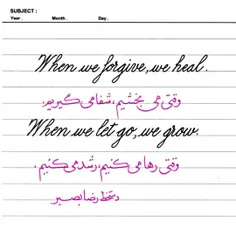 SUBJECT :
Year . Month . Day .
When we forgive, we heal.
وقتی می بخشیم، شفا می گیریم.
When we let go, we grow.
وقتی رها می کنیم، رشد می کنیم.
دستخط رضا بصیر